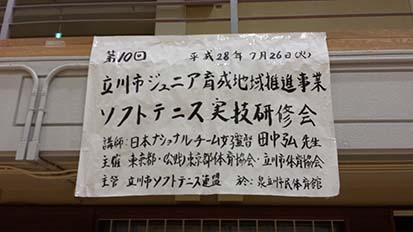 第10回 平成28年7月26日(火)
立川市ジュニア育成地域推進事業
ソフトテニス実技研修会
講師:日本ナショナルチーム女子監督 田中弘 先生
主催 東京都・(公財)東京都体育協会・立川市体育協会
主管 立川市ソフトテニス連盟 於:泉立川市民体育館